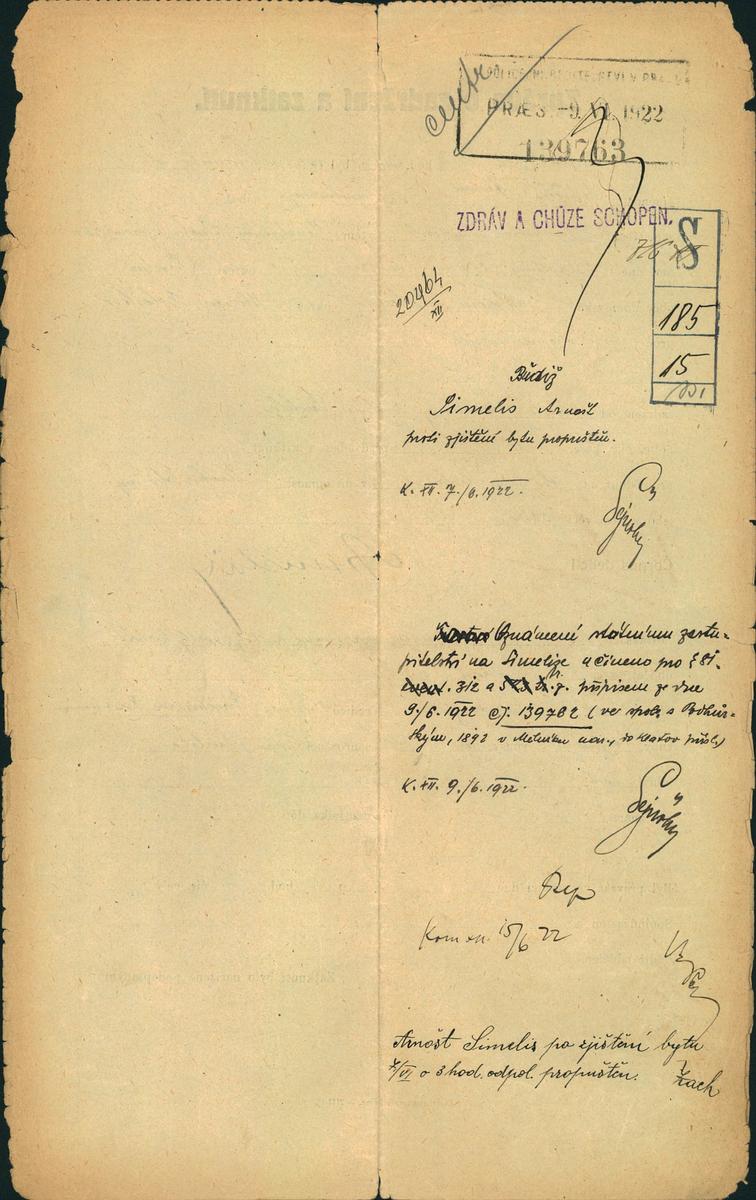 centr.
POLICEJNÍ ŘEDITELSTVÍ V PRAZE
PRÆS. -9. VI. 1922
139763
ZDRÁV A CHŮZE SCHOPEN.
S
185
15
20464
XII
Budiž
Simelis Arnošt
proti zjištění bytu propuštěn.
K. XII. 7./6. 1922.
Oznámení státnímu zastu-
pitelství na Simelise učiněno pro § 81
312 a přípisem ze dne
9./6. 1922 čj. 139762 (ve spolu s
1892 v nar., do Klatov přísl.)
K. XII. 9./6. 1922.
Rep
Kom XII. 15/6 22
Arnošt Simelis po zjištění bytu
7/VI o 3 hod. odpol. propuštěn. Žach